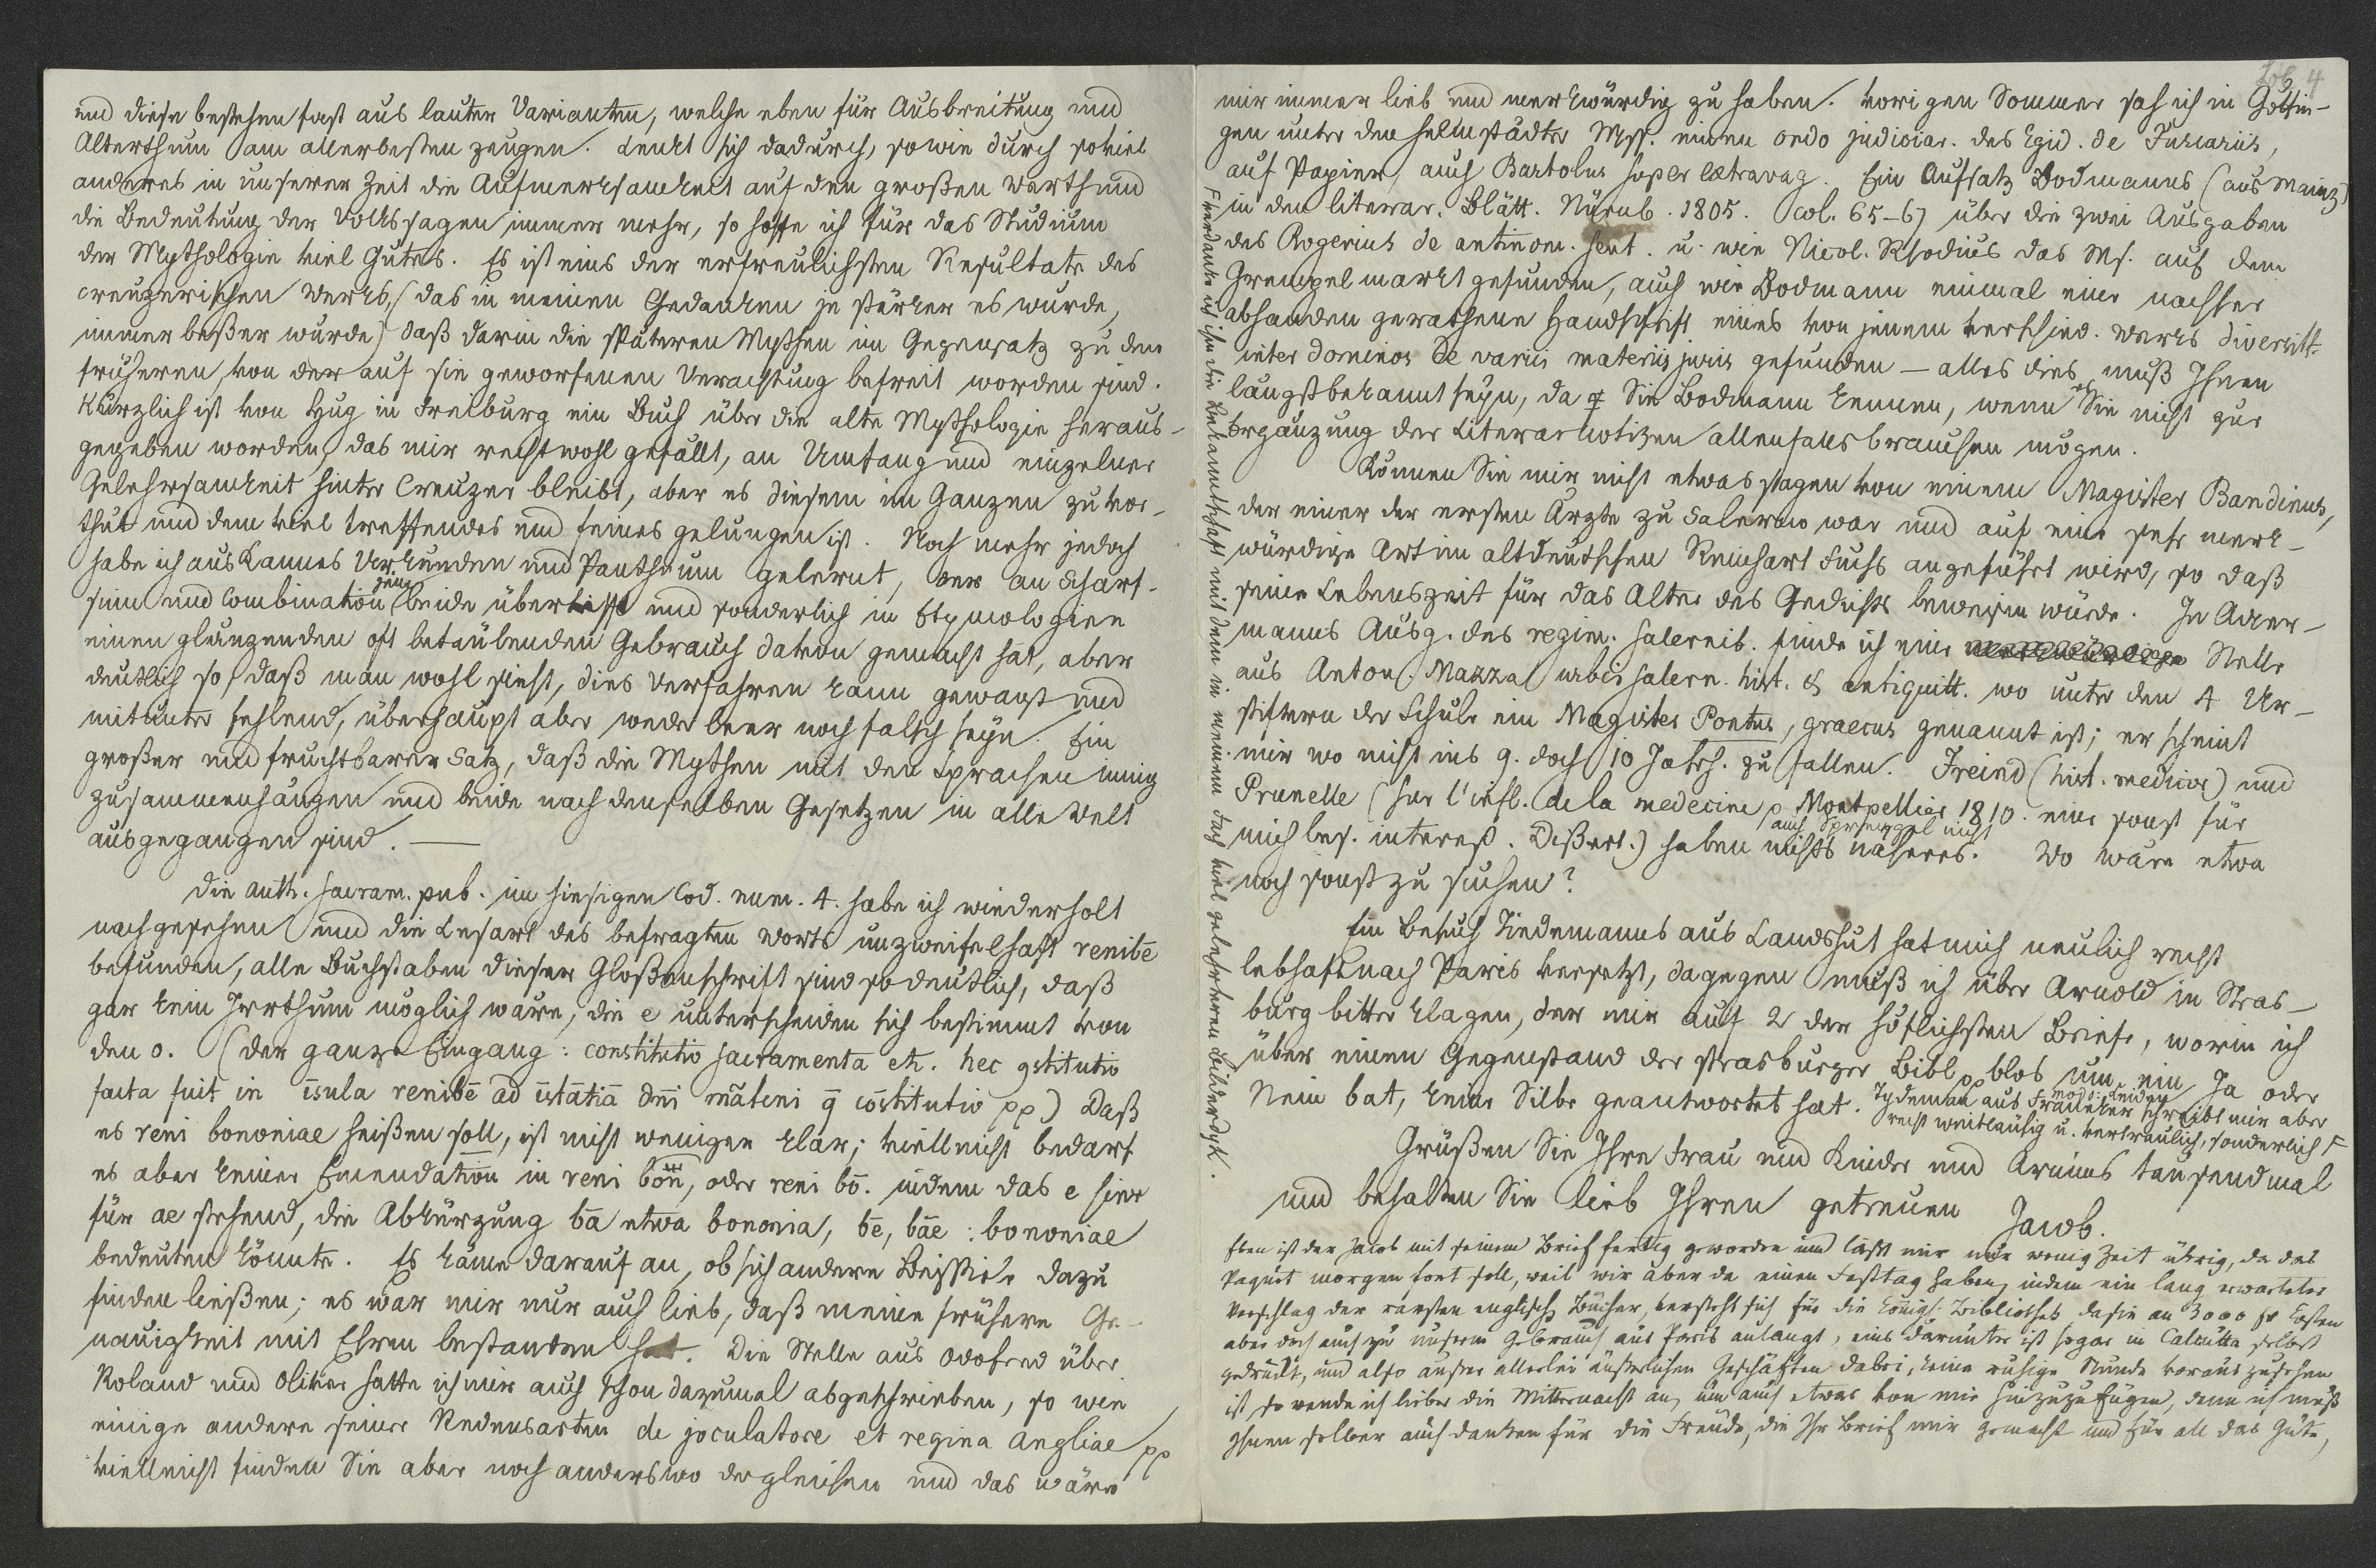 und diese bestehen fast aus lauter Varianten, welche eben für Ausbreitung und
Alterthum am allerbesten zeugen. Lenkt sich dadurch, sowie durch soviel
anderes in unserer Zeit die Aufmerksamkeit auf den großen Werth und
die Bedeutung der Volkssagen immer mehr, so hoffe ich für das Studium
der Mythologie viel Gutes. Es ist eins der erfreulichsten Resultate des
creuzerischen Werks, (das in meinen Gedanken je stärker es wurde,
immer beßer wurde) daß darin die späteren Mythen im Gegensatz zu den
früheren, von der auf sie geworfenen Verachtung befreit worden sind.
Kürzlich ist von Hug in Freiburg ein Buch über die alte Mythologie heraus-
gegeben worden, das mir recht wohl gefällt, an Umfang und einzelner
Gelehrsamkeit hinter Creuzer bleibt, aber es diesem im Ganzen zuvor-
thut und dem viel treffendes und feines gelungen ist. Noch mehr jedoch
habe ich aus Kannes Urkunden und Pantheum gelernt, der an Scharf-
sinn und Combination jene beide übertrifft und sonderlich in Etymologien
einen glänzenden oft betäubenden Gebrauch davon gemacht hat, aber
deutlich so, daß man wohl sieht, dies Verfahren kann gewagt und
mitunter fehlend, überhaupt aber weder leer noch falsch seyn. Ein
großer und fruchtbarer Satz, daß die Mythen mit den Sprachen innig
zusammenhängen und beide nach denselben Gesetzen in alle Welt
ausgegangen sind. —
Die auth. sacram. pub. im hiesigen Cod. num. 4. habe ich wiederholt
nachgesehen und die Lesart des befragten Worts unzweifelhaft renibē
befunden, alle Buchstaben dieser Gloßenschrift sind so deutlich, daß
gar kein Irrthum möglich wäre, die e unterscheiden sich bestimmt von
den o. (der ganze Eingang: constitutio sacramenta etc. hec 9stitutio
facta fuit in īsula renibē ad īstātiā dn̄i mātini q̄ cōstitutio pp) Daß
es reni bononiae heißen soll, ist nicht weniger klar; vielleicht bedarf
es aber keiner Emendation in reni bōn̄, oder reni bō. indem das e hier
für ae stehend, die Abkürzung bā etwa bononia, bē, bāe: bononiae
bedeuten könnte. Es käme darauf an, ob sich andere Beispiele dazu
finden ließen; es war mir nur auch lieb, daß meine frühere Ge-
nauigkeit mit Ehren bestanden hat. Die Stelle aus Odofred über
Roland und Olivier hatte ich mir auch schon dazumal abgeschrieben, so wie
einige andere seiner Redensarten de joculatore et regina Angliae pp
vielleicht finden Sie aber noch anderswo dergleichen und das wäre
4
mir immer lieb und merkwürdig zu haben. Vorigen Sommer sah ich in Göttin-
gen unter den helmstädter Mss. einen ordo judiciar. des Egid. de Fuscariis,
auf Papier, auch Bartolus super extravag. Ein Aufsatz Bodmanns (aus Mainz)
in den literar. Blätt. Nürnb. 1805. Col. 65-67 über die zwei Ausgaben
des Rogerius de antinom. sent. u. wie Nicol. Rhodius das Ms. auf dem
Grempelmarkt gefunden, auch wie Bodmann einmal eine nachher
abhanden gerathene Handschrift eines von jenem verschied. Werks diversitt.
inter dominos de variis materiis juris gefunden — alles dies muß Ihnen
längst bekannt seyn, da Sie Bodmann kennen, wenn es Sie nicht zur
Ergänzung der Literarnotizen allenfalls brauchen mögen.
Können Sie mir nicht etwas sagen von einem Magister Bandinus,
der einer der ersten Ärzte zu Salerno war und auf eine sehr merk-
würdige Art im altdeutschen Reinhart Fuchs angeführt wird, so daß
seine Lebenszeit für das Alter des Gedichts beweisen würde. In Acker-
manns Ausg. des regim. salernit. finde ich eine Stelle
aus Anton. Mazza urbis salern. hist. & antiquitt. wo unter den 4 Ur-
stiftern der Schule ein Magister Pontus, graecus genannt ist; er scheint
mir wo nicht ins 9. doch 10 Jahrh. zu fallen. Freind (hist. medicor) und
Prunelle (sur l'infl. de la medecine p Montpellier 1810. eine sonst für
mich bes. intereß. Dißert.) auch Sprengel nicht haben nichts näheres. Wo wäre etwa
noch sonst zu suchen?
Ein Besuch Tiedemanns aus Landshut hat mich neulich recht
lebhaft nach Paris versetzt, dagegen muß ich über Arnold in Stras-
burg bitter klagen, der mir auf 2 der höflichsten Briefe, worin ich
über einen Gegenstand der strasburger Bibl. pp blos um ein Ja oder
Nein bat, keine Silbe geantwortet hat. Tydeman aus Franeker modo: Leiden schreibt mir aber
recht weitläufig u. vertraulich, sonderlich F
Grüßen Sie Ihre Frau und Kinder und Arnims tausendmal
und behalten Sie lieb Ihren getreuen Jacob.
Eben ist der Jacob mit seinem Brief fertig geworden und läßt mir nur wenig Zeit übrig, da das
Paquet morgen fort soll, weil wir aber da einen Festtag haben, indem ein lang erwarteter
Verschlag der rarsten englisch Bücher, versteht sich für die königl: Bibliothek da sie an 3000 fr kosten
aber doch auch zu unserm Gebrauch aus Paris anlangt, eins darunter ist sogar in Calcutta selbst
gedruckt, und also außer allerlei äußerlichen Geschäften dabei, keine ruhige Stunde vorauszusehen
ist, so wende ich lieber die Mitternacht an, um auch etwas von mir hinzuzufügen, denn ich muß
Ihnen selber auch danken für die Freude, die Ihr Brief mir gemacht und für all das Gute,
F verdanke ich ihm die Bekanntschaft mit dem in meinem Fach viel gelehrteren Bilderdyk.